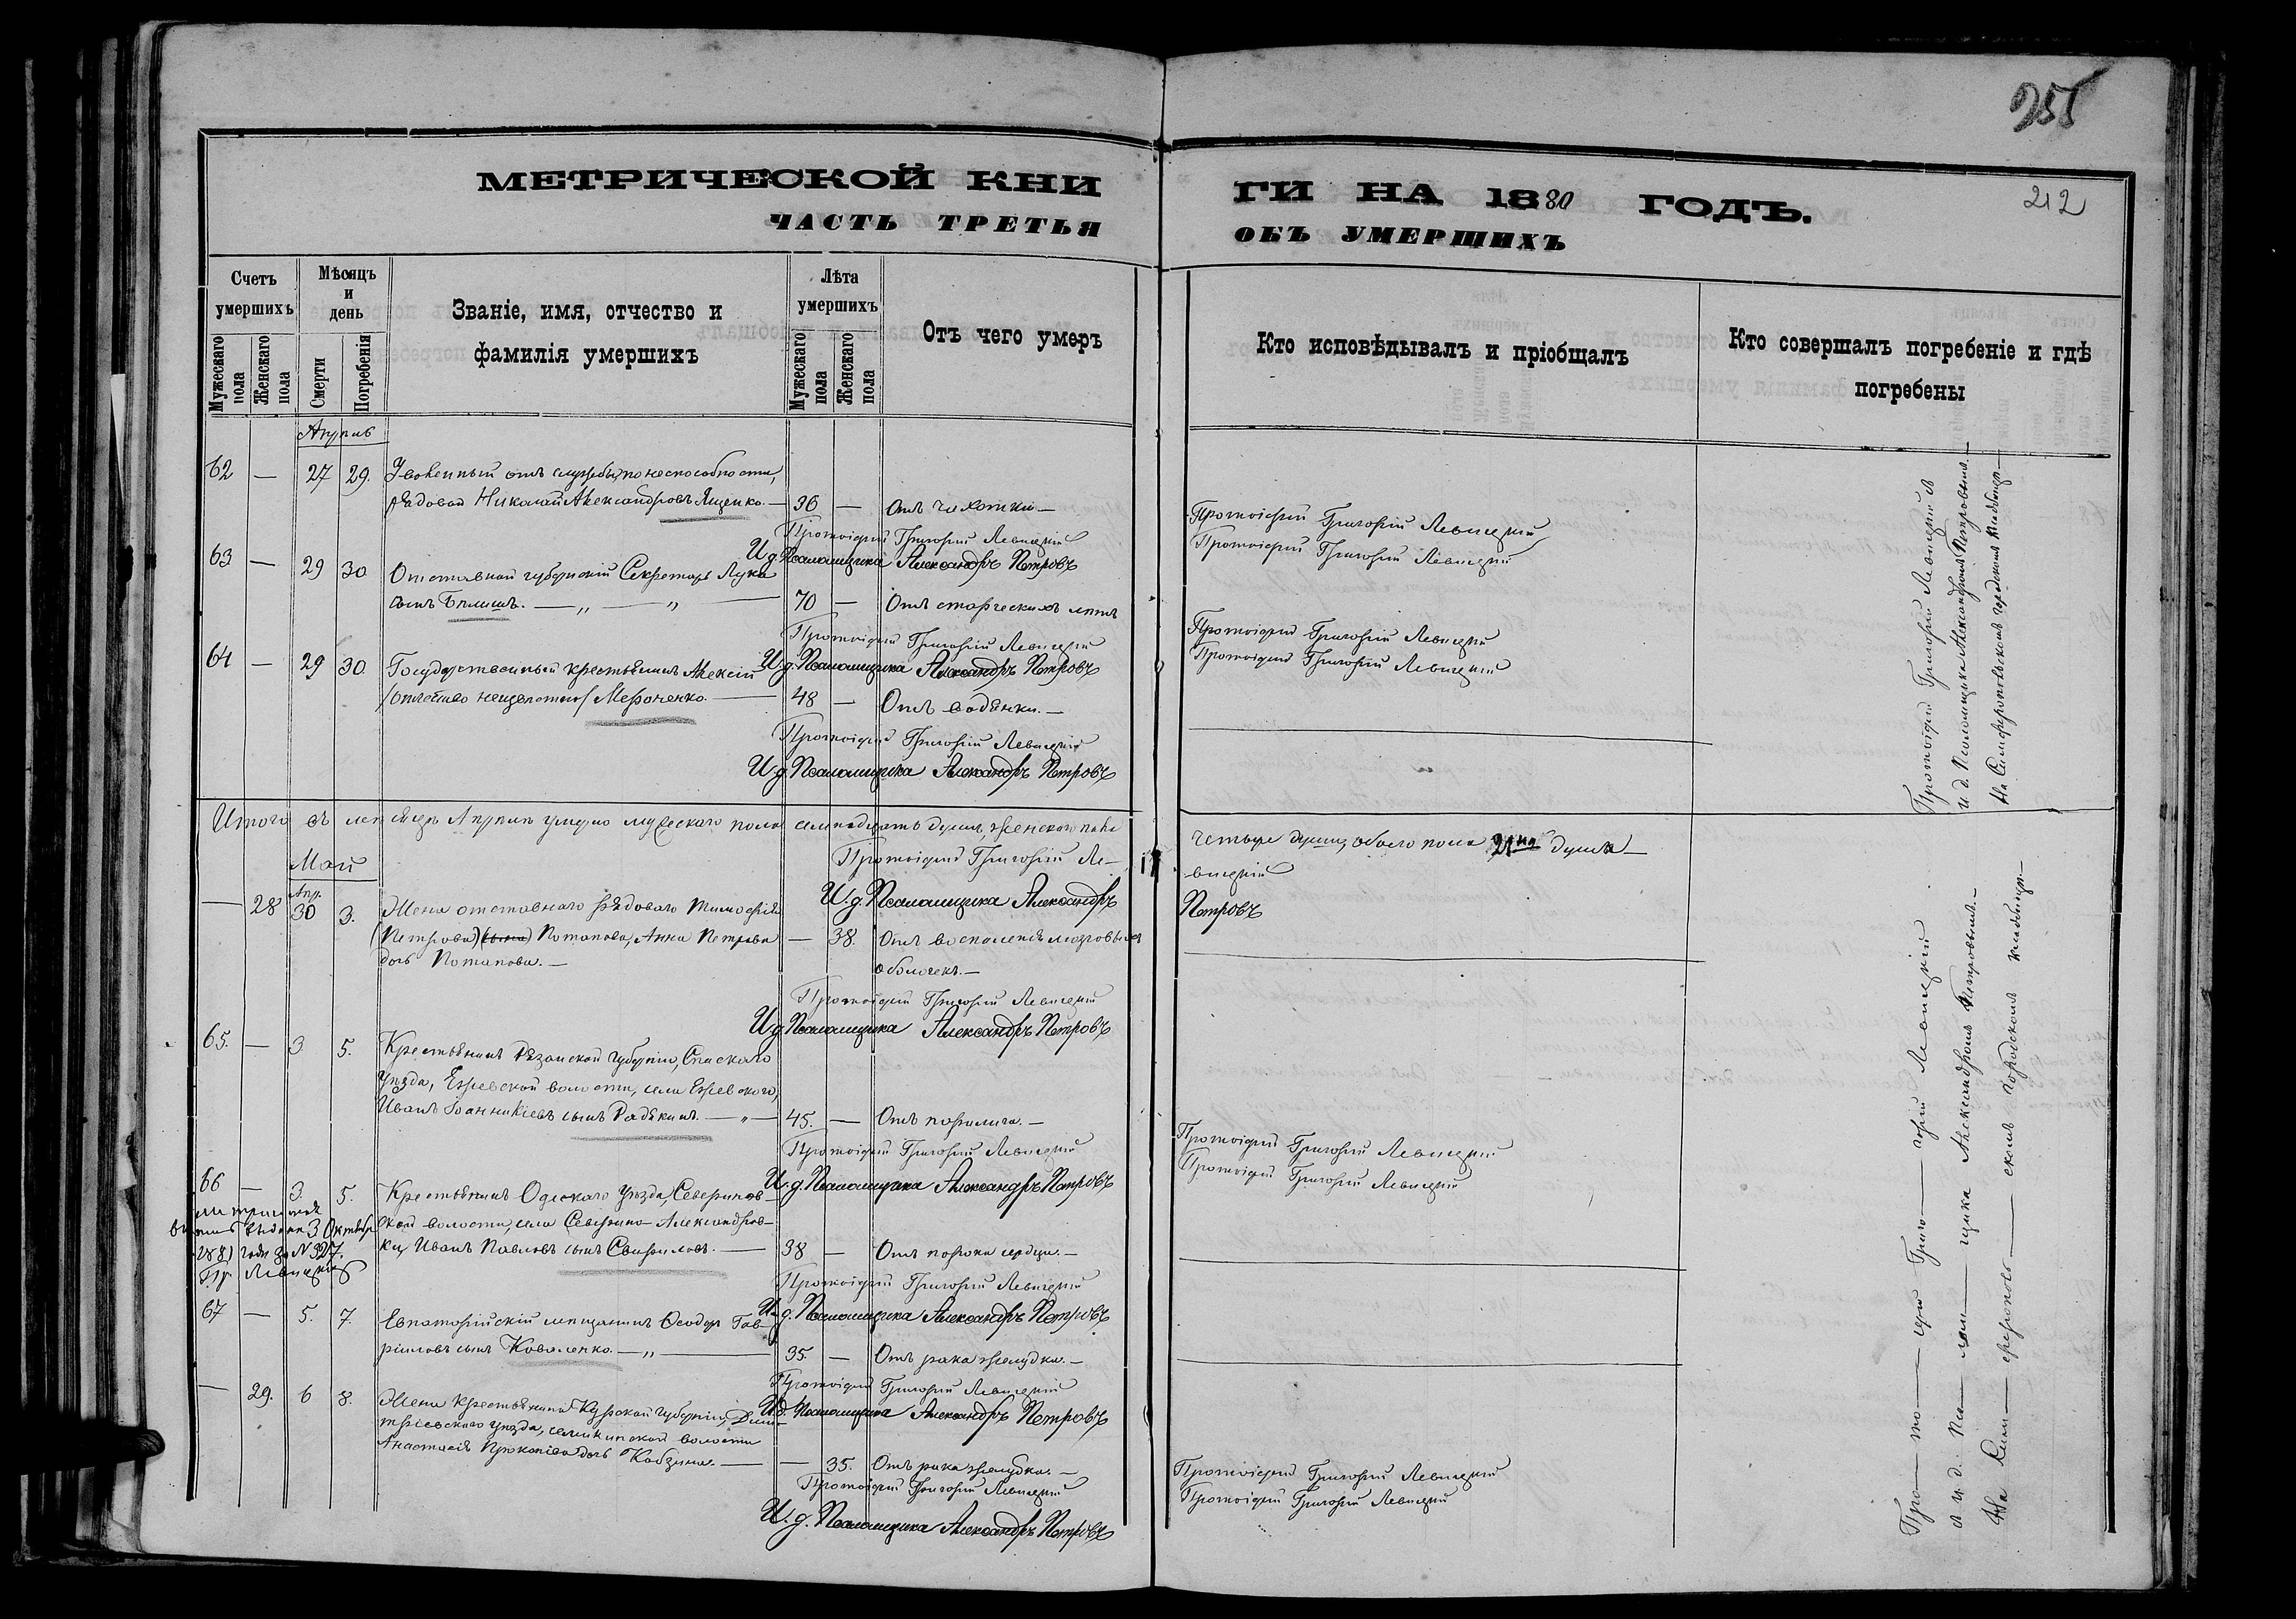 255
212
МЕТРИЧЕСКОЙ КНИ
ЧАСТЬ ТРЕТЬЯ
ГИ НА 1880 ГОДЪ.
ОБЪ УМЕРШИХЪ
Счетъ умершихъ
Мужескаго пола
Женскаго пола
Мѣсяцъ и день
Смерти
Погребенія
Званіе, имя, отчество и фамилія умершихъ
Лѣта умершихъ
Мужескаго пола
Женскаго пола
Отъ чего умеръ
Кто исповѣдывалъ и пріобщалъ
Кто совершалъ погребеніе и гдѣ погребены
Апрѣль
62 — 27 29. Уволенный отъ службы, по неспособности,
рядовой Николай Александровъ Ященко. — 36 — Отъ чахотки —
Протоіерей Григорій Левицкій
И. д. Псаломщика Александръ Петровъ
Протоіерей Григорій Левицкій
Протоіерей Григорій Левицкій
63 — 29 30 Отставной губернскій Секретарь Лука
сынъ Бѣлишъ. — „ — „ — 70 — Отъ старческихъ лѣтъ
Протоіерей Григорій Левицкій
И. д. Псаломщика Александръ Петровъ
Протоіерей Григорій Левицкій
Протоіерей Григорій Левицкій
64 — 29 30. Государственный крестьянинъ Алексій
/отчество неизвѣстно/ Мероненко. — 48 — Отъ водянки. —
Протоіерей Григорій Левицкій
И. д. Псаломщика Александръ Петровъ
Протоіерей Григорій Левицкій и
и. д. Псаломщика Александромъ Петровымъ. —
На Симферопольскомъ городскомъ кладбищѣ —
Итого въ мѣсяцѣ Апрѣлѣ умерло мужескаго пола семнадцать душъ, женскаго пола
четыре души, обоего пола 21на душа —
Протоіерей Григорій Ле-
вицкій
И. д. Псаломщика Александръ
Петровъ
Май
— 28 Апр. 30 3. Жена отставнаго рядоваго Тимофея
(Петрова) (сына) Потапова, Анна Петрова — 38. Отъ воспаленія мозговыхъ
дочь Потапова. — оболочекъ. —
Протоіерей Григорій Левицкій
И. д. Псаломщика Александръ Петровъ
65. — 3 5. Крестьянинъ Рязанской губерніи, Спаскаго
уѣзда, Ижевской волости, села Ижевскаго,
Иванъ Іоанникіевъ сынъ Радякинъ. — „ — 45. — Отъ паралича. —
Протоіерей Григорій Левицкій
И. д. Псаломщика Александръ Петровъ
Протоіерей Григорій Левицкій
Протоіерей Григорій Левицкій
66 — 3. 5. Крестьянинъ Одескаго уѣзда, Северинов-
ской волости, села Северино-Александров-
ки Иванъ Павловъ сынъ Свириловъ. — 38 — Отъ порока сердца. —
выдана 3 Октября
1881 года за № 327.
Пр. Левицкій
Протоіерей Григорій Левицкій
И. д. Псаломщика Александръ Петровъ
67 — 5. 7. Евпаторійскій мѣщанинъ Ѳеодоръ Гав-
риловъ сынъ Коваленко. — „ — 35. — Отъ рака желудка. —
Протоіерей Григорій Левицкій
И. д. Псаломщика Александръ Петровъ
— 29. 6 8. Жена крестьянина Курской губерніи, Дми-
тріевскаго уѣзда, волости
Анастасія Прокопіева дочь Кобзина. — 35. Отъ рака желудка. —
Протоіерей Григорій Левицкій
И. д. Псаломщика Александръ Петровъ
Протоіерей Григорій Левицкій
Протоіерей Григорій Левицкій
Про — то — іерей Григо — горій Левицкій
и и. д. Пса — лом — щика Александромъ Петровымъ. —
На Сим — ферополь — скомъ городскомъ кладбищѣ —